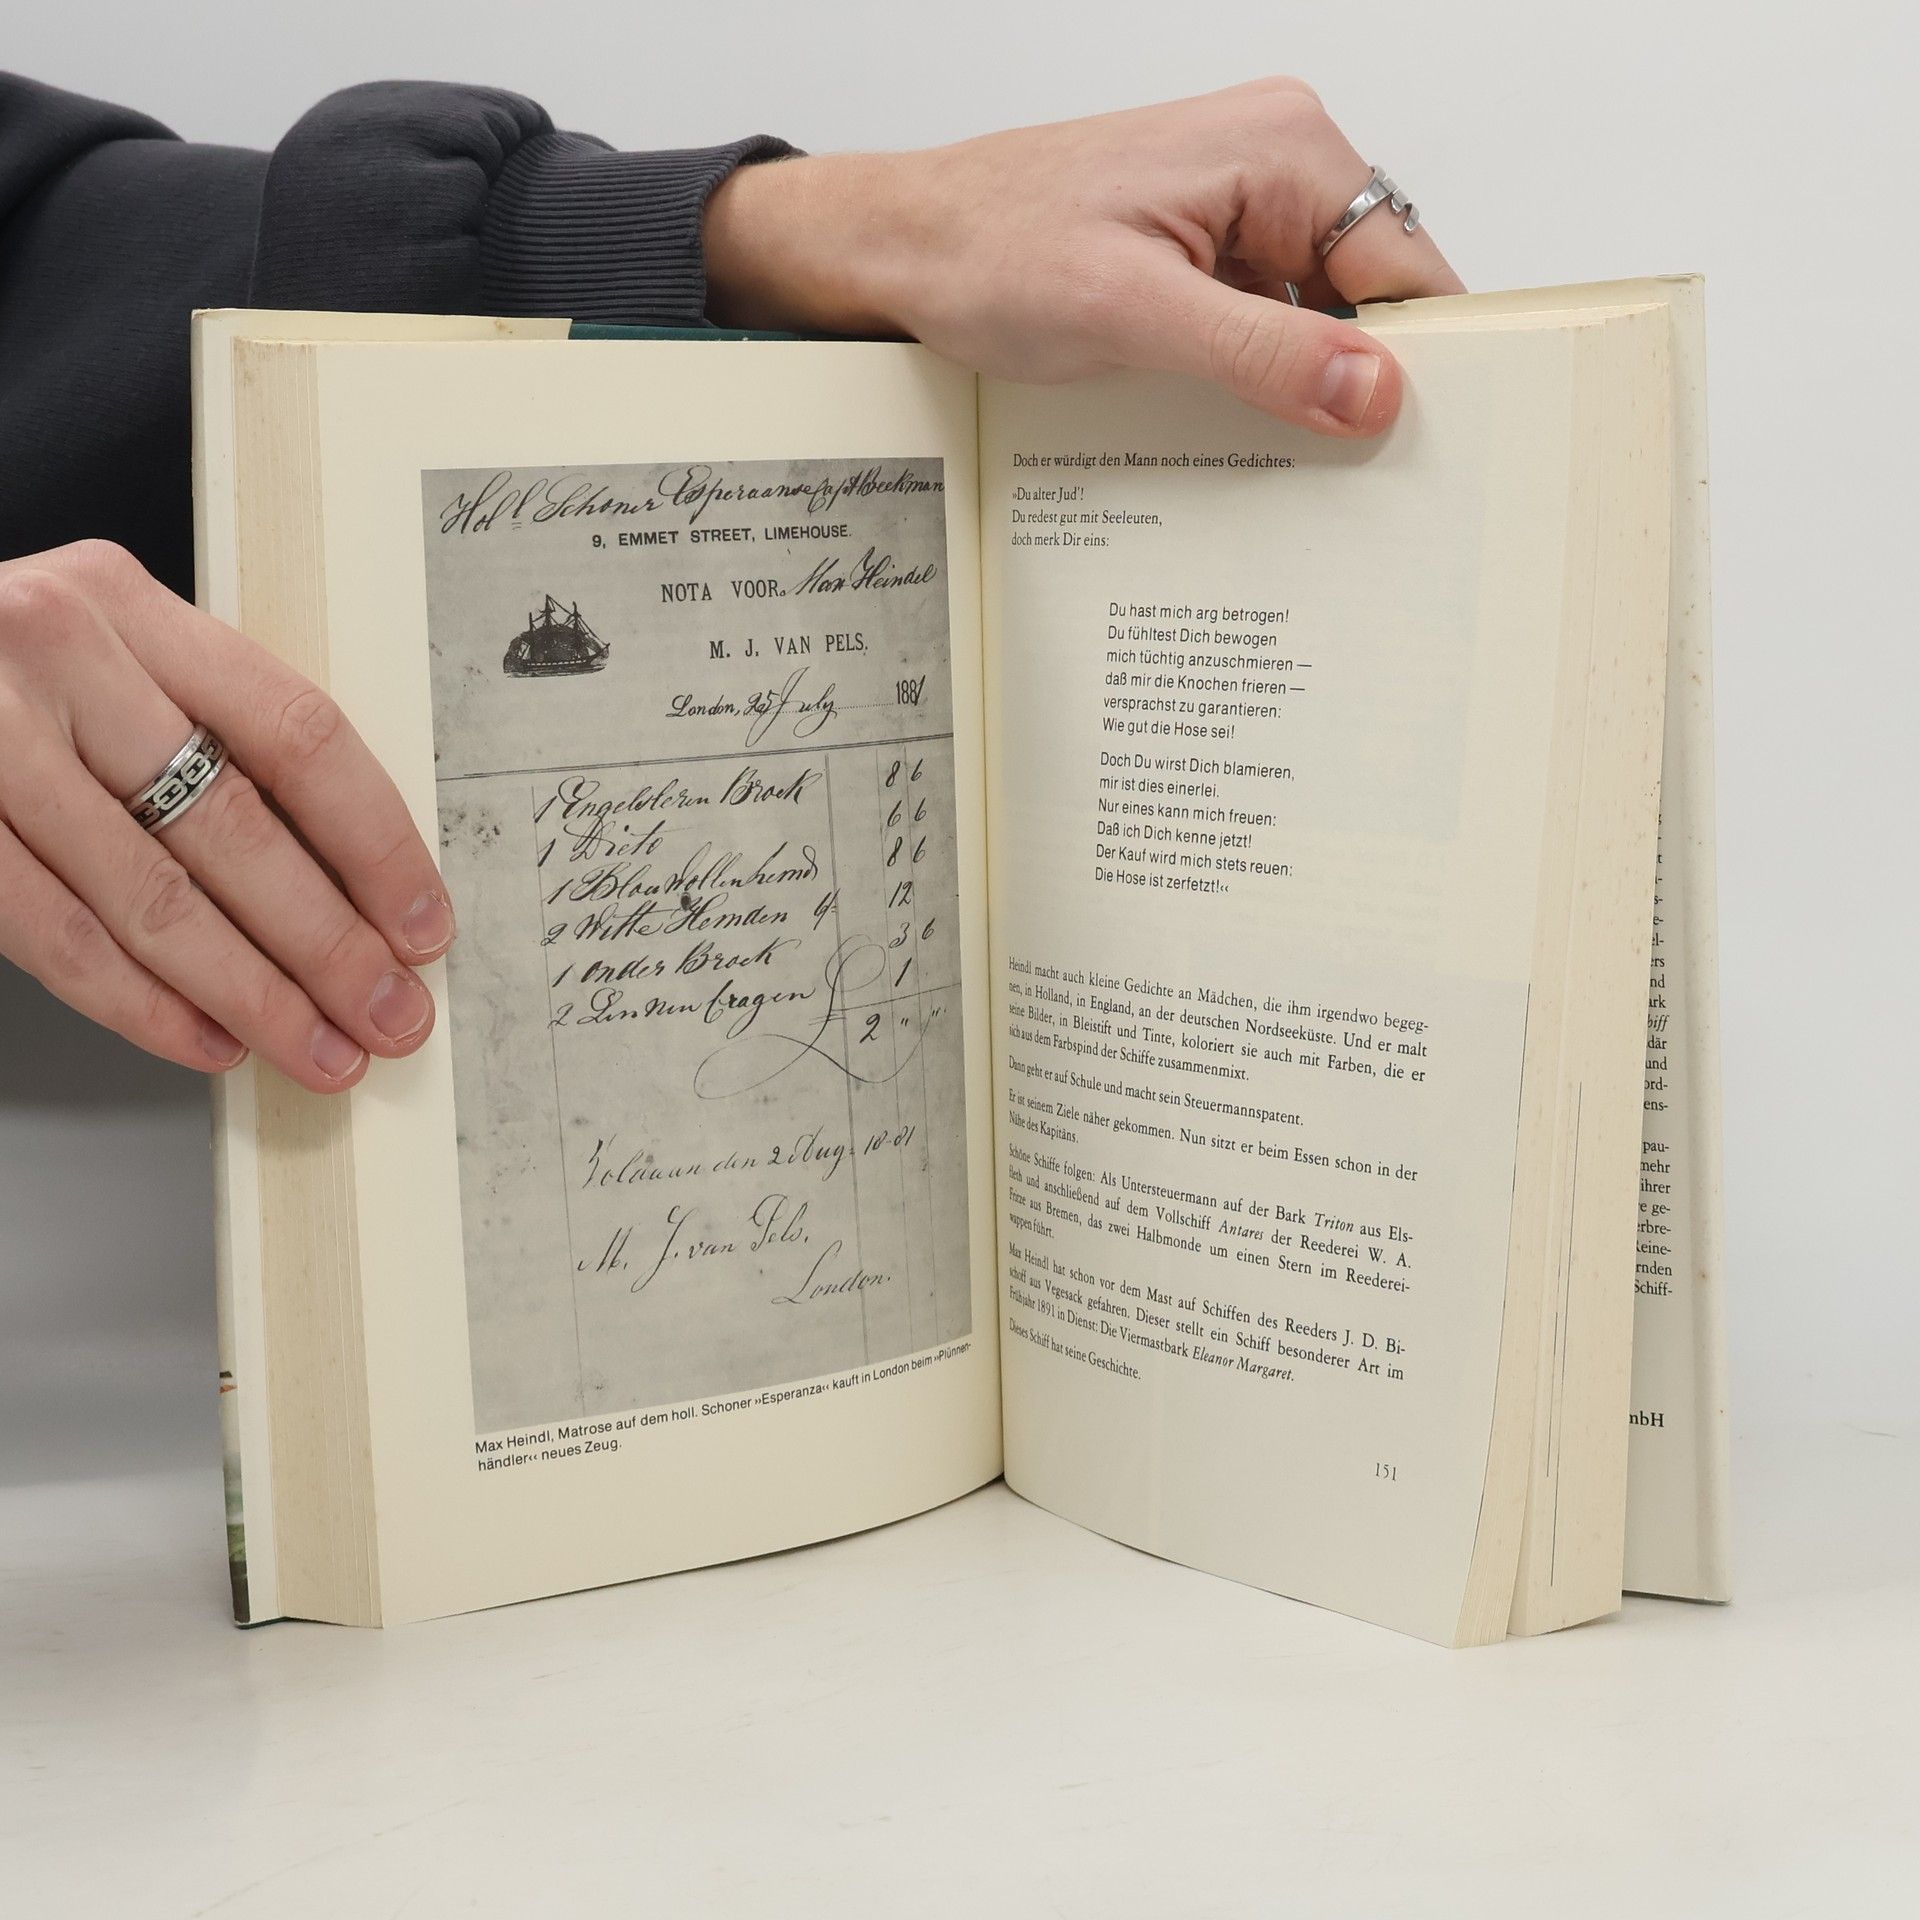 Holl Schoner Esperaanse Capt Beekman
9, EMMET STREET, LIMEHOUSE.
NOTA VOOR. Max Heindel
M. J. VAN PELS.
London, 25 July 1881
1 Engelsleren Broek 8 6
1 Dieto 6 6
1 Blauwollenhemd 8 6
2 Witte Hemden 6/= 12
1 onder Broek 3 6
2 Linnen Cragen 1
2 " "
Volaaan den 2 Aug= 18-81
M. J. van Pels.
London.
Max Heindl, Matrose auf dem holl. Schoner »Esperanza« kauft in London beim »Plünnen-
händler« neues Zeug.
Doch er würdigt den Mann noch eines Gedichtes:
»Du alter Jud'!
Du redest gut mit Seeleuten,
doch merk Dir eins:
Du hast mich arg betrogen!
Du fühltest Dich bewogen
mich tüchtig anzuschmieren —
daß mir die Knochen frieren —
versprachst zu garantieren:
Wie gut die Hose sei!
Doch Du wirst Dich blamieren,
mir ist dies einerlei.
Nur eines kann mich freuen:
Daß ich Dich kenne jetzt!
Der Kauf wird mich stets reuen:
Die Hose ist zerfetzt!«
Heindl macht auch kleine Gedichte an Mädchen, die ihm irgendwo begeg-
nen, in Holland, in England, an der deutschen Nordseeküste. Und er malt
seine Bilder, in Bleistift und Tinte, koloriert sie auch mit Farben, die er
sich aus dem Farbspind der Schiffe zusammenmixt.
Dann geht er auf Schule und macht sein Steuermannspatent.
Er ist seinem Ziele näher gekommen. Nun sitzt er beim Essen schon in der
Nähe des Kapitäns.
Schöne Schiffe folgen: Als Untersteuermann auf der Bark Triton aus Els-
fleth und anschließend auf dem Vollschiff Antares der Reederei W. A.
Fritze aus Bremen, das zwei Halbmonde um einen Stern im Reederei-
wappen führt.
Max Heindl hat schon vor dem Mast auf Schiffen des Reeders J. D. Bi-
schoff aus Vegesack gefahren. Dieser stellt ein Schiff besonderer Art im
Frühjahr 1891 in Dienst: Die Viermastbark Eleanor Margaret.
Dieses Schiff hat seine Geschichte.
151
pau-
mehr
ihrer
ge-
rnden
Schiff-
mbH